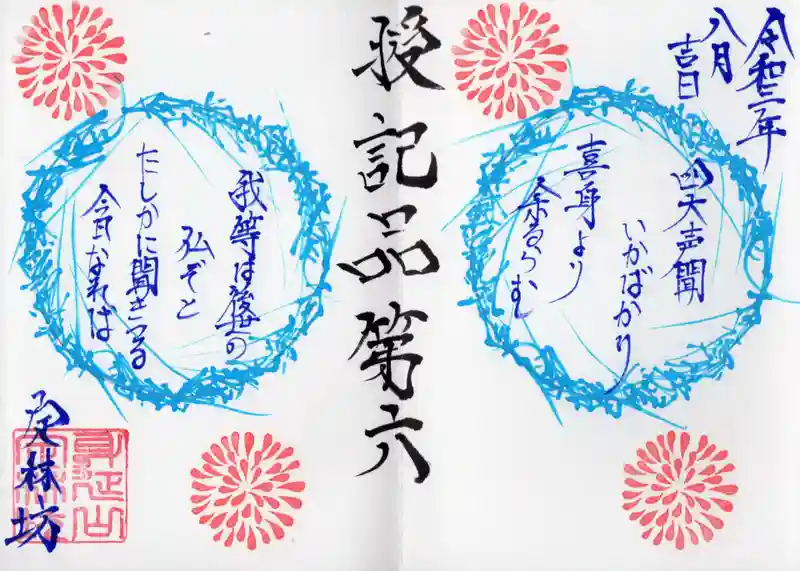 令和三年
八月
吉日
四大声聞
いかばかり
喜身より
余るらむ
授記品第六
我等は後世の
仏ぞと
たしかに聞きつる
今日なれば
定林坊
身延山